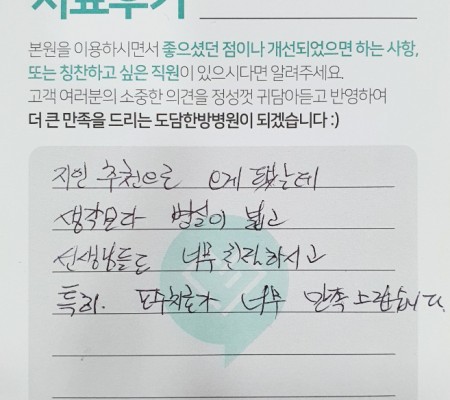 치료후기
본원을 이용하시면서 좋으셨던 점이나 개선되었으면 하는 사항,
또는 칭찬하고 싶은 직원이 있으시다면 알려주세요.
고객 여러분의 소중한 의견을 정성껏 귀담아듣고 반영하여
더 큰 만족을 드리는 도담한방병원이 되겠습니다 :)
지인 추천으로 오게 됐는데
생각보다 병실이 넓고
선생님들도 너무 친절하시고
특히. 도수치료가 너무 만족스럽습니다.